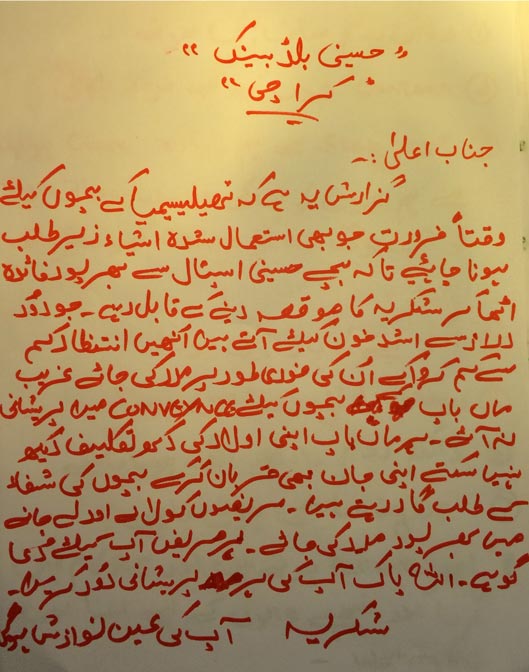 "حسینی بلڈ بینک"
"کراچی"
جناب اعلیٰ :۔
گزارش یہ ہے کہ تھیلیسیمیا کے بچوں کیلئے
وقتاً ضرورت جو بھی استعمال شدہ اشیاء زیر طلب
ہونا چاہئیے تاکہ بچے حسینی اسپتال سے بھرپور فائدہ
اٹھا کر شکریہ کا موقعہ دینے کے قابل رہے۔ جو دُور
دراز سے اشد خون کیلئے آتے ہیں انہیں انتظار کم
سے کم کرواکے اُن کی فوری طور پر مدد کی جائے غریب
ماں باپ بچوں کیلئے CONVEYNCE میں پریشانی
نہ آئے۔ ہر ماں باپ اپنی اولاد کی دکھ و تکلیف دیکھ
نہیں سکتے اپنی جان بھی قربان کرکے بچوں کی شفاء
کے طلب گار رہتے ہیں۔ مریضوں کو لانے اور لے جانے
میں بھرپور مدد کی جائے۔ ہر مریض آپ کیلئے دعا
گو ہے۔ اللہ پاک آپ کی ہر پریشانی دُور کریں۔
شکریہ آپ کی عین نوازش ہوگی